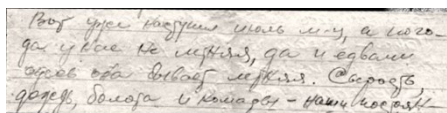 Вот уже наступил июль м-ц, а пого-
да у нас не мужяя, да и едвали
она бывает мужяя. Сырость,
дождь, болота и комары – наши постоян-